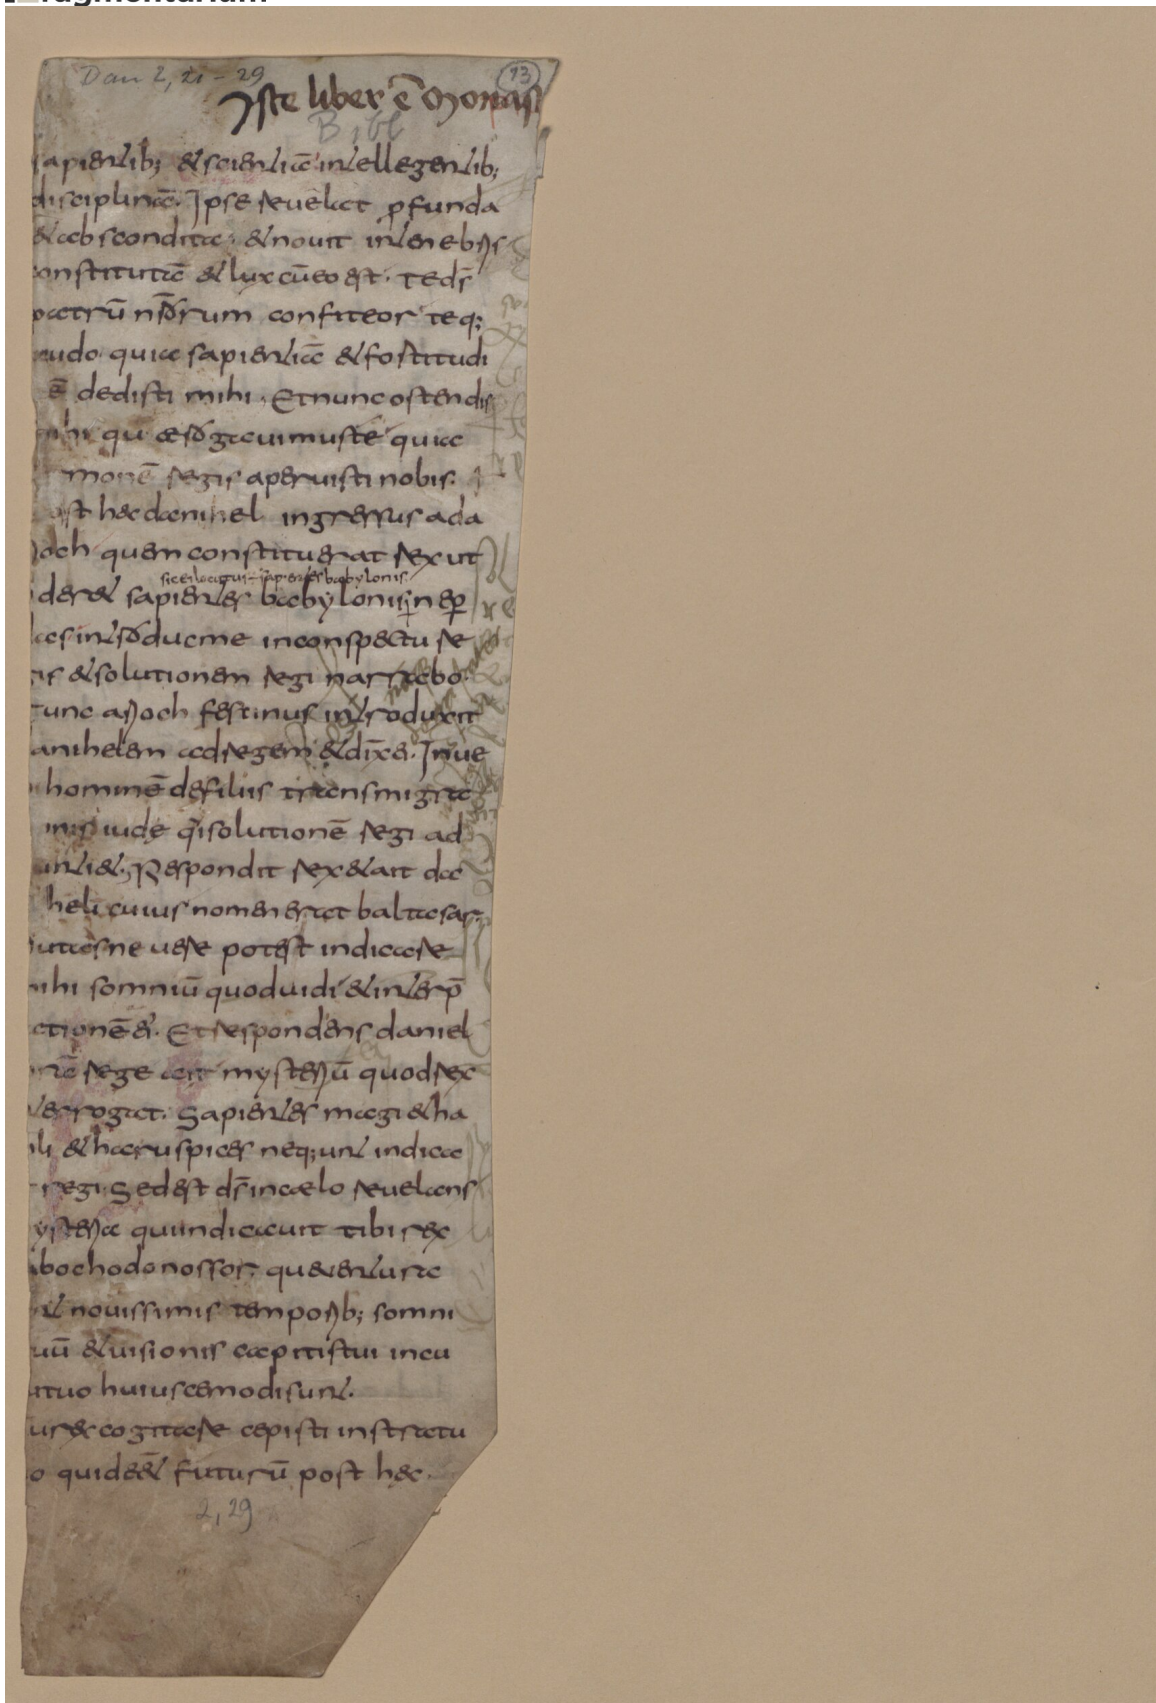 fragmentarium
Dan 2, 21 - 29
13
Iste liber ē Monast
Bibl
sapientib; & scientiā intellegentib;
disciplinā. Ipse reuelat ꝓfunda
& abscondita. & nouit in tenebris
onstitutā & lux cū eo est. te dš
patrū nr̄orum confiteor teq;
audo quia sapientiā & fortitudi
ē dedisti mihi. Et nunc ostendis
mihi quae rogauimus te quia
monē regis aperuisti nobis.
ost hęc danihel ingressus ad a
och quem constituerat rex ut
sic ei locutus ÷ sapientes babylonis
der& sapientes babylonis ne ꝑ
das introduc me in conspectu re
is & solutionem regi narrabo
Tunc arioch festinus introduxit
anihelem ad regem & dix ei. Inue
hominē de filiis transmigra
nis iudę qi solutionē regi ad
unti&. Respondit rex & ait da
heli cuius nomen erat baltasar.
utasne uere potest indicare
mihi somniū quod uidi & interp̄
ationē ei. Et respondens daniel
rā rege ait mysteriū quod rex
terrogat. Sapientes magi & ha
li & haruspices neq;unt indica
regi. Sed est dš in caelo reuelans
ysteria qui indicauit tibi rex
bochodonossor. quae uentura
nt nouissimis temporib; somni
uū & uisionis capitis tui in cu
tuo huiuscemodi sunt.
u rex cogitare cepisti in stratu
o quid e&̄ futurū post hęc.
2, 29